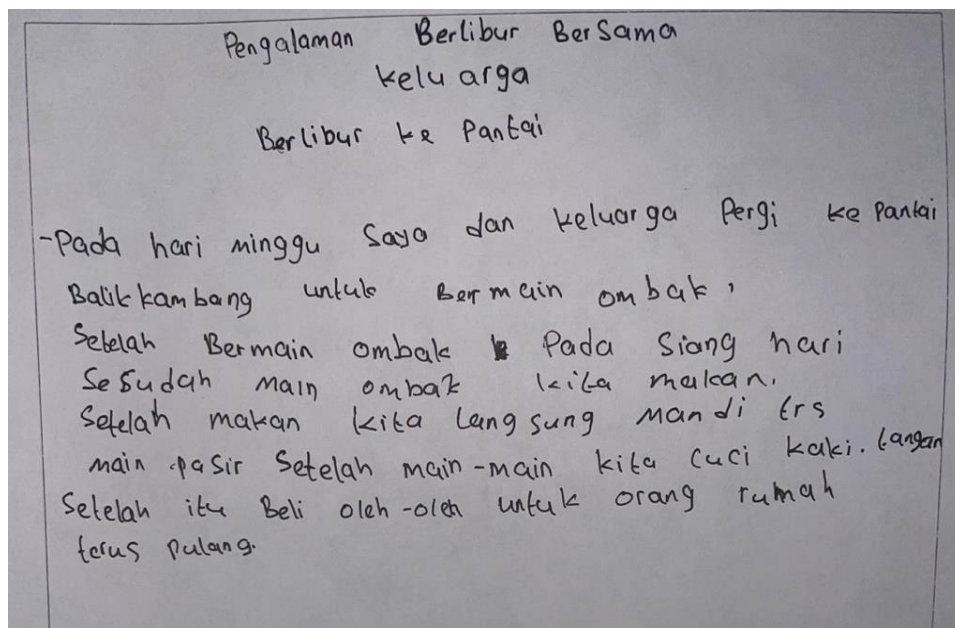 Pengalaman Berlibur Bersama
keluarga
Berlibur ke Pantai
-Pada hari minggu Saya dan keluarga Pergi ke Pantai
Balikkambang untuk Bermain ombak,
Setelah Bermain ombak Pada Siang hari
Sesudah main ombak kita makan.
Setelah makan kita langsung mandi trs
main pasir Setelah main-main kita cuci kaki. tangan
Setelah itu Beli oleh-oleh untuk orang rumah
terus pulang.